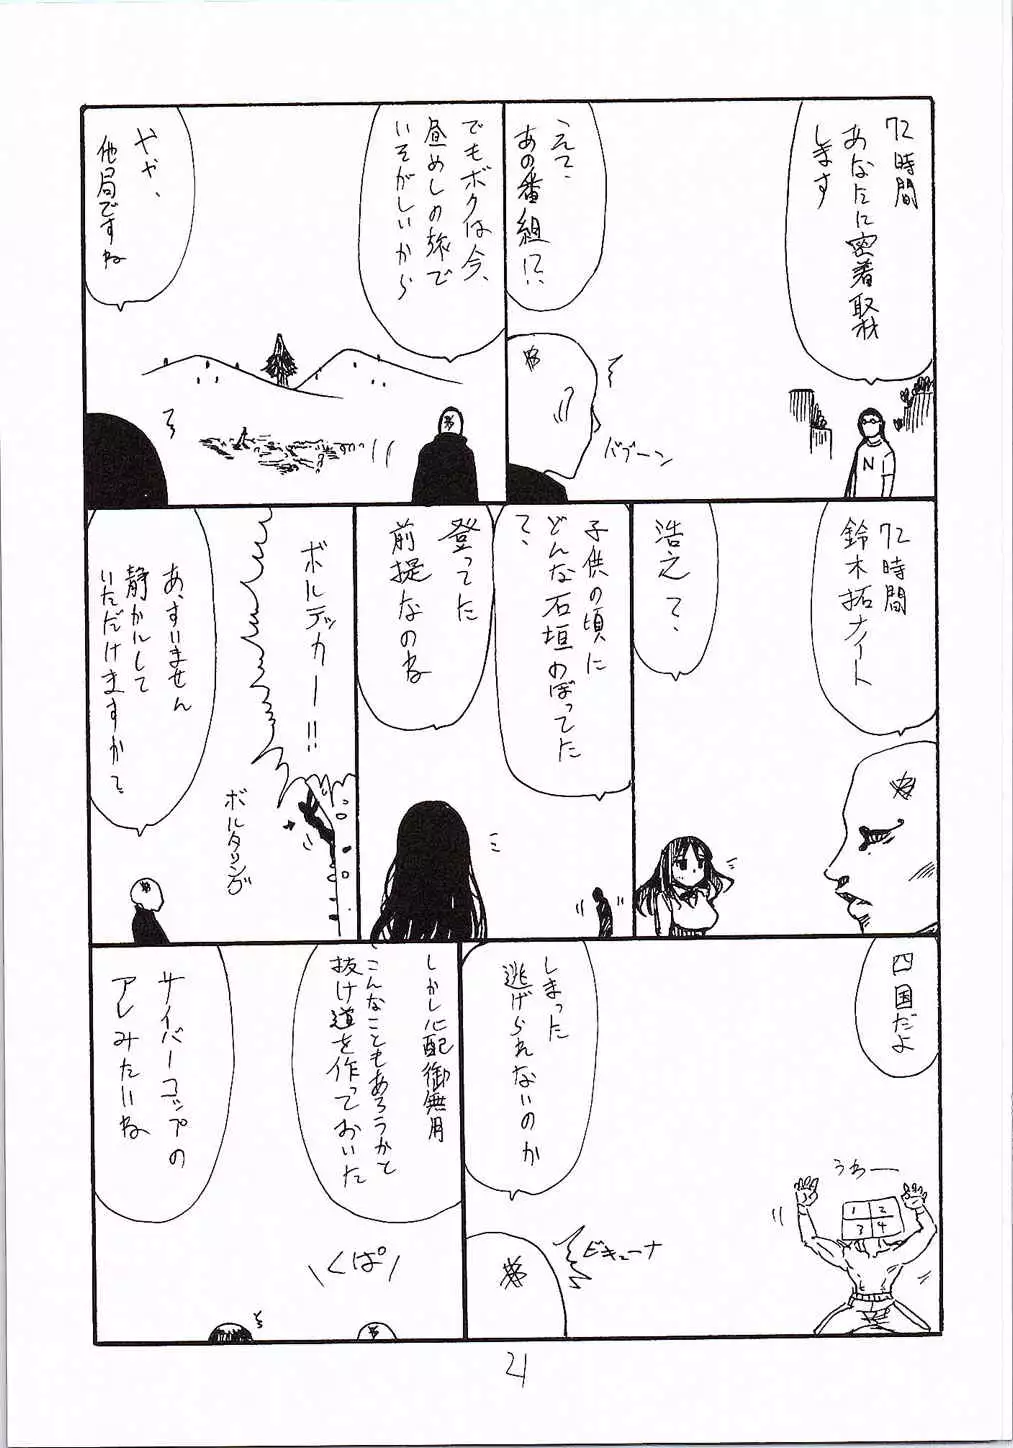 72時間
あなたに密着取材
します
ええ、
あの番組!?
N
バブーン
でもボクは今、
昼めしの旅で
いそがしいから
やや、
他局ですね
72時間
鈴木拓ナイト
浩之て、
子供の頃に
どんな石垣のぼってた
て、
登ってた
前提なのね
ボルデッカー!!
ボルタリング
あ、すいません
静かにして
いただけますかて
四国だよ
うわー
1 2
3 4
しまった
逃げられないのか
ビキューナ
しかし心配御無用
こんなこともあろうかと
抜け道を作っておいた
サイバーコップの
アレみたいね
くぱぁ
21